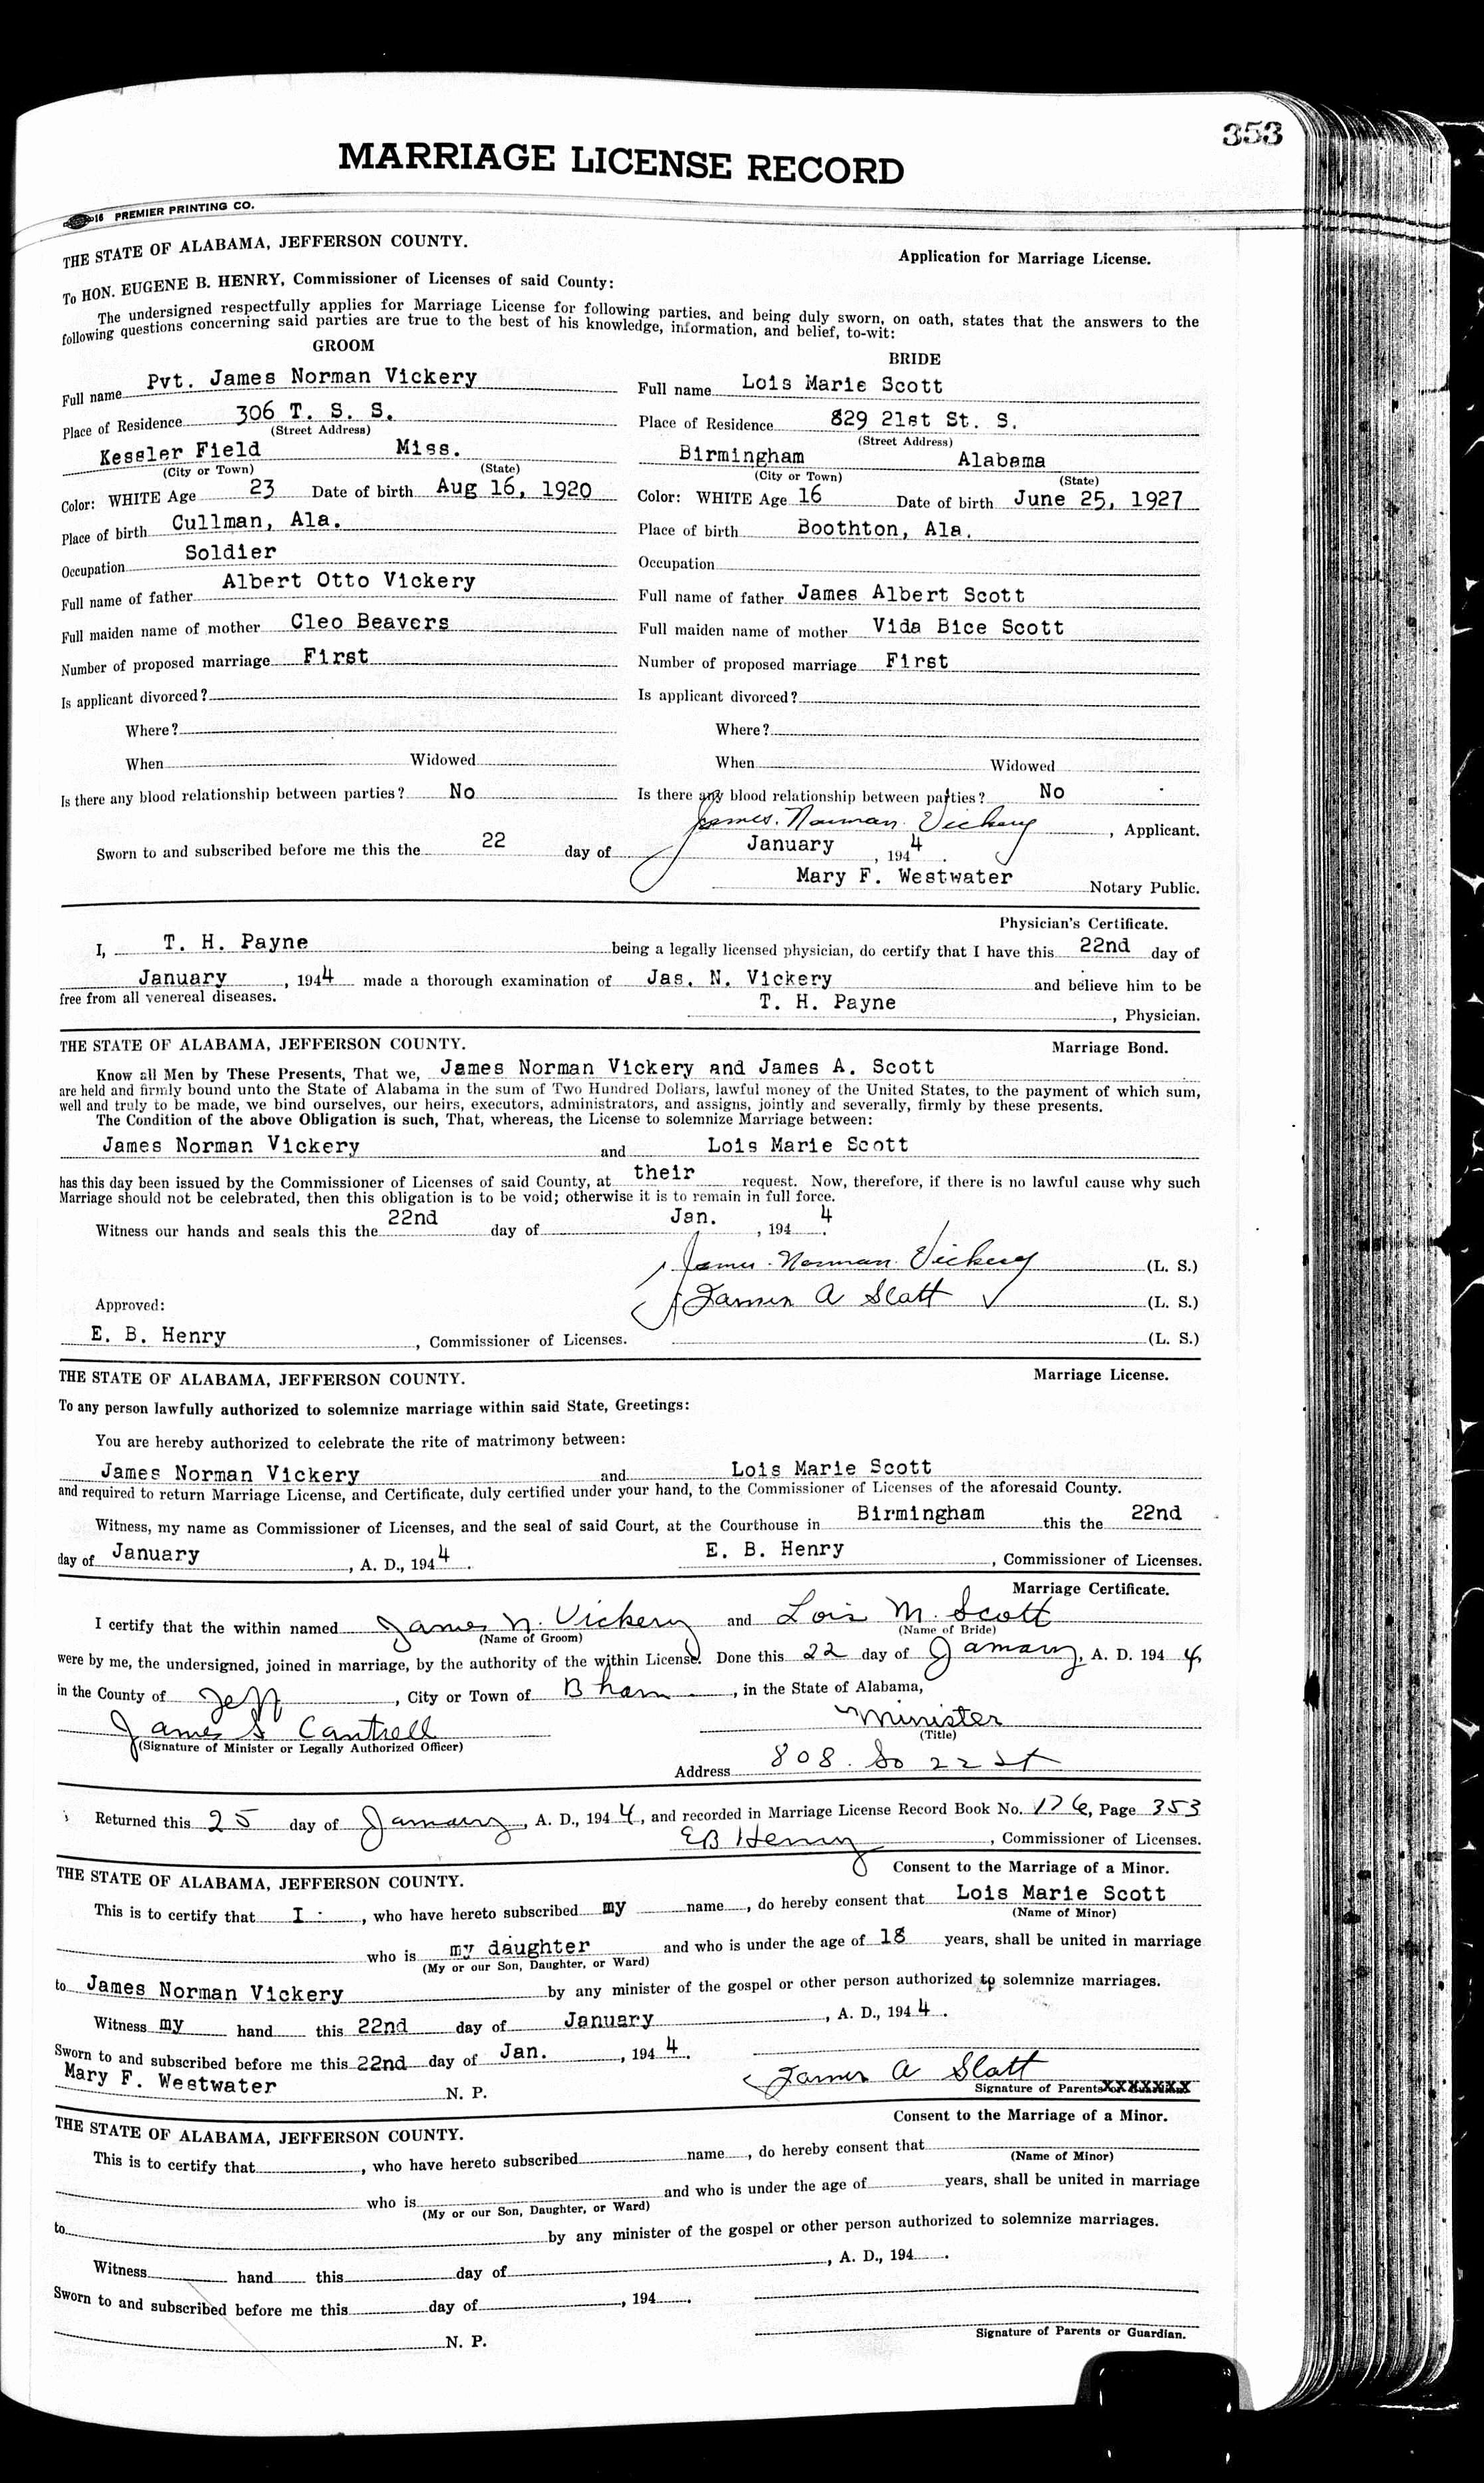 353
MARRIAGE LICENSE RECORD
16 PREMIER PRINTING CO.
THE STATE OF ALABAMA, JEFFERSON COUNTY. Application for Marriage License.
To HON. EUGENE B. HENRY, Commissioner of Licenses of said County:
The undersigned respectfully applies for Marriage License for following parties, and being duly sworn, on oath, states that the answers to the
following questions concerning said parties are true to the best of his knowledge, information, and belief, to-wit:
GROOM BRIDE
Full name Pvt. James Norman Vickery Full name Lois Marie Scott
Place of Residence 306 T. S. S. Place of Residence 829 21st St. S.
(Street Address) (Street Address)
Kessler Field Miss. Birmingham Alabama
(City or Town) (State) (City or Town) (State)
Color: WHITE Age 23 Date of birth Aug 16, 1920 Color: WHITE Age 16 Date of birth June 25, 1927
Place of birth Cullman, Ala. Place of birth Boothton, Ala.
Occupation Soldier Occupation
Full name of father Albert Otto Vickery Full name of father James Albert Scott
Full maiden name of mother Cleo Beavers Full maiden name of mother Vida Bice Scott
Number of proposed marriage First Number of proposed marriage First
Is applicant divorced? Is applicant divorced?
Where? Where?
When Widowed When Widowed
Is there any blood relationship between parties? No Is there any blood relationship between parties? No
James. Norman. Vickery, Applicant.
Sworn to and subscribed before me this the 22 day of January, 1944.
Mary F. Westwater Notary Public.
Physician's Certificate.
I, T. H. Payne being a legally licensed physician, do certify that I have this 22nd day of
January, 1944 made a thorough examination of Jas. N. Vickery and believe him to be
free from all venereal diseases. T. H. Payne, Physician.
THE STATE OF ALABAMA, JEFFERSON COUNTY. Marriage Bond.
Know all Men by These Presents, That we, James Norman Vickery and James A. Scott
are held and firmly bound unto the State of Alabama in the sum of Two Hundred Dollars, lawful money of the United States, to the payment of which sum,
well and truly to be made, we bind ourselves, our heirs, executors, administrators, and assigns, jointly and severally, firmly by these presents.
The Condition of the above Obligation is such, That, whereas, the License to solemnize Marriage between:
James Norman Vickery and Lois Marie Scott
has this day been issued by the Commissioner of Licenses of said County, at their request. Now, therefore, if there is no lawful cause why such
Marriage should not be celebrated, then this obligation is to be void; otherwise it is to remain in full force.
Witness our hands and seals this the 22nd day of Jan., 1944.
James. Norman. Vickery (L. S.)
Approved: James A Scott (L. S.)
E. B. Henry, Commissioner of Licenses. (L. S.)
THE STATE OF ALABAMA, JEFFERSON COUNTY. Marriage License.
To any person lawfully authorized to solemnize marriage within said State, Greetings:
You are hereby authorized to celebrate the rite of matrimony between:
James Norman Vickery and Lois Marie Scott
and required to return Marriage License, and Certificate, duly certified under your hand, to the Commissioner of Licenses of the aforesaid County.
Witness, my name as Commissioner of Licenses, and the seal of said Court, at the Courthouse in Birmingham this the 22nd
day of January, A. D., 1944. E. B. Henry, Commissioner of Licenses.
Marriage Certificate.
I certify that the within named James N. Vickery and Lois M. Scott
(Name of Groom) (Name of Bride)
were by me, the undersigned, joined in marriage, by the authority of the within License. Done this 22 day of January, A. D. 1944,
in the County of Jeff, City or Town of Bham, in the State of Alabama,
James S Cantrell Minister
(Signature of Minister or Legally Authorized Officer) (Title)
Address 808. So 22 St
Returned this 25 day of January, A. D., 1944, and recorded in Marriage License Record Book No. 176, Page 353
EB Henry, Commissioner of Licenses.
THE STATE OF ALABAMA, JEFFERSON COUNTY. Consent to the Marriage of a Minor.
This is to certify that I, who have hereto subscribed my name, do hereby consent that Lois Marie Scott
(Name of Minor)
who is my daughter and who is under the age of 18 years, shall be united in marriage
(My or our Son, Daughter, or Ward)
to James Norman Vickery by any minister of the gospel or other person authorized to solemnize marriages.
Witness my hand this 22nd day of January, A. D., 1944.
Sworn to and subscribed before me this 22nd day of Jan., 1944.
Mary F. Westwater N. P. James A Scott
Signature of Parents XXXXXXX
THE STATE OF ALABAMA, JEFFERSON COUNTY. Consent to the Marriage of a Minor.
This is to certify that, who have hereto subscribed name, do hereby consent that
(Name of Minor)
who is and who is under the age of years, shall be united in marriage
(My or our Son, Daughter, or Ward)
to by any minister of the gospel or other person authorized to solemnize marriages.
Witness hand this day of, A. D., 194.
Sworn to and subscribed before me this day of, 194.
N. P. Signature of Parents or Guardian.